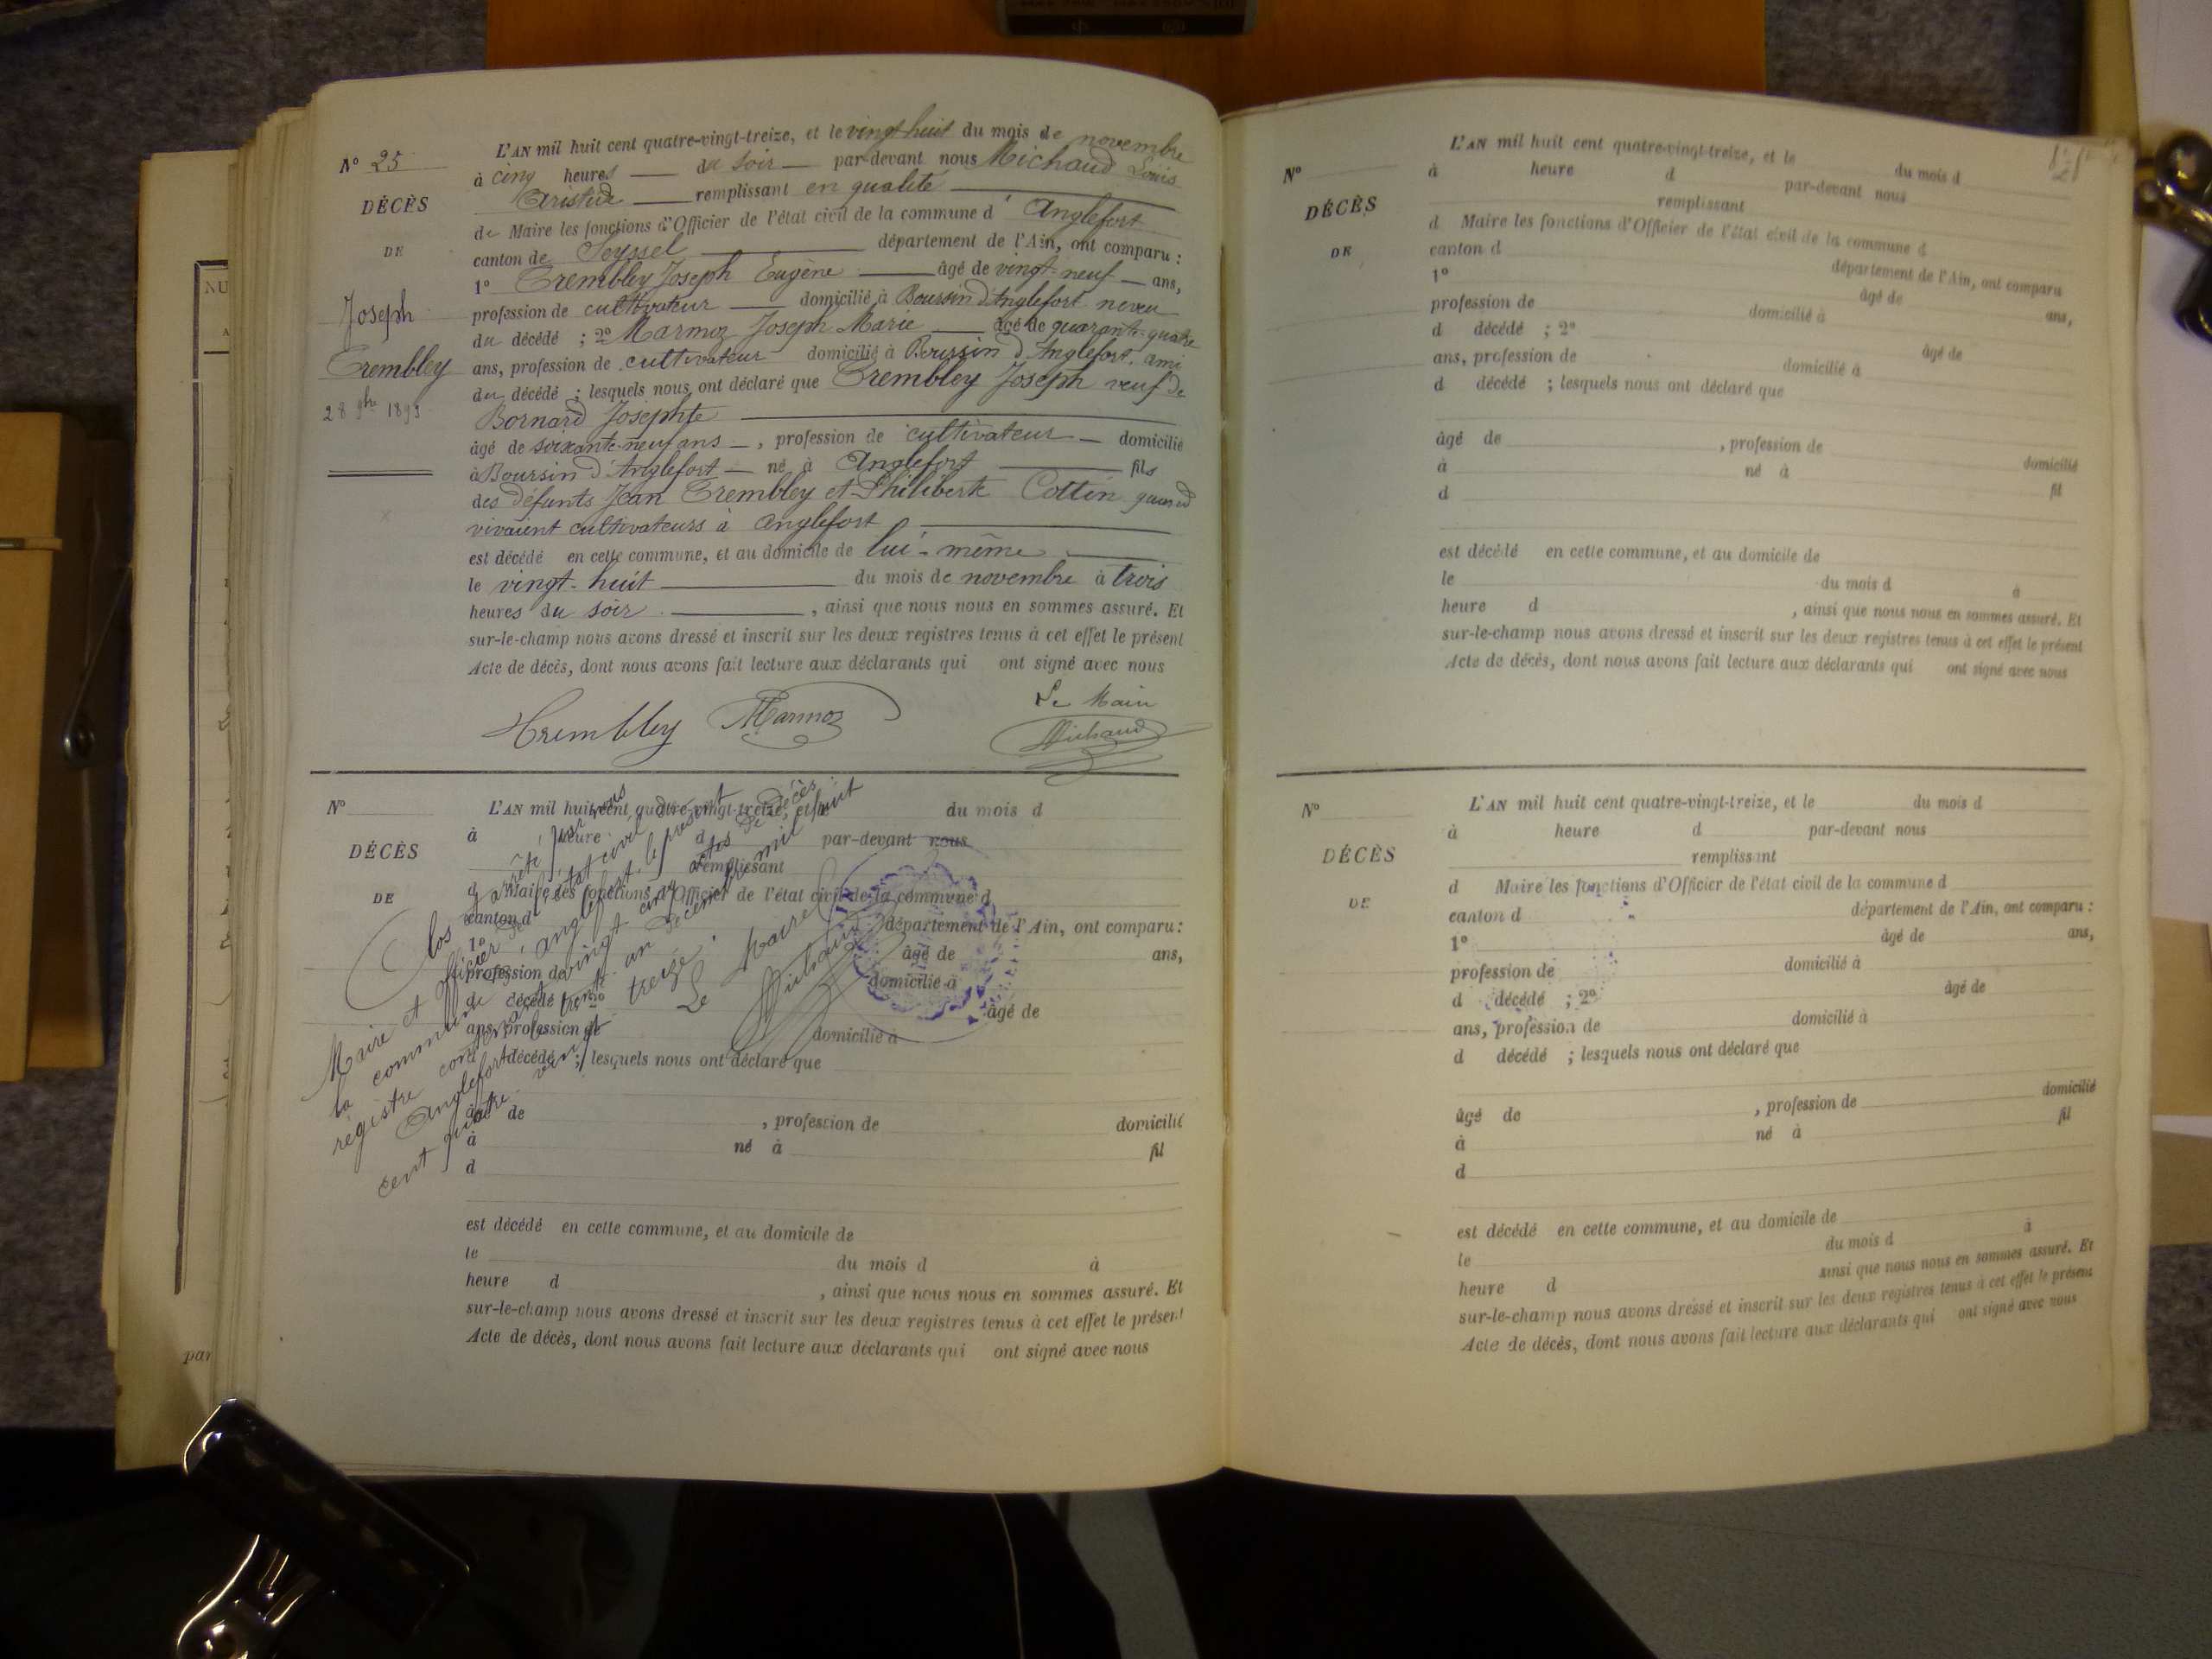 N° 25
DÉCÈS
DE
Joseph
Trembley
28 9bre 1893
L'AN mil huit cent quatre-vingt-treize, et le vingt huit du mois de novembre
à cinq heures du soir par-devant nous Michaud Louis
Aristide remplissant en qualité
de Maire les fonctions d'Officier de l'état civil de la commune d'Anglefort
canton de Seyssel département de l'Ain, ont comparu :
1° Trembley Joseph Eugène âgé de vingt-neuf ans,
profession de cultivateur domicilié à Boursin d'Anglefort neveu
du décédé ; 2° Marmoz Joseph Marie âgé de quarante-quatre
ans, profession de cultivateur domicilié à Boursin d'Anglefort ami
du décédé ; lesquels nous ont déclaré que Trembley Joseph veuf de
Bornard Josephte
âgé de soixante-neuf ans, profession de cultivateur domicilié
à Boursin d'Anglefort né à Anglefort fils
des défunts Jean Trembley et Philiberte Cottin quand
vivaient cultivateurs à Anglefort
est décédé en cette commune, et au domicile de lui-même
le vingt-huit du mois de novembre à trois
heures du soir, ainsi que nous nous en sommes assuré. Et
sur-le-champ nous avons dressé et inscrit sur les deux registres tenus à cet effet le présent
Acte de décès, dont nous avons fait lecture aux déclarants qui ont signé avec nous
Trembley Marmoz
Le Maire
Michaud
N°
DÉCÈS
DE
L'AN mil huit cent quatre-vingt-treize, et le du mois d
à heure d par-devant nous
remplissant
d Maire les fonctions d'Officier de l'état civil de la commune d
canton d département de l'Ain, ont comparu :
1° âgé de ans,
profession de domicilié à
d décédé ; 2° âgé de
ans, profession de domicilié à
d décédé ; lesquels nous ont déclaré que
âgé de , profession de domicilié
à né à fil
d
est décédé en cette commune, et au domicile de
le du mois d à
heure d , ainsi que nous nous en sommes assuré. Et
sur-le-champ nous avons dressé et inscrit sur les deux registres tenus à cet effet le présent
Acte de décès, dont nous avons fait lecture aux déclarants qui ont signé avec nous
Clos et arrêté par nous
Maire et Officier de l'état civil de
la commune d'Anglefort, le présent
registre contenant vingt cinq actes de décès
Anglefort trente un décembre mil huit
cent quatre vingt treize.
Le Maire
Michaud
par
N°
DÉCÈS
DE
L'AN mil huit cent quatre-vingt-treize, et le du mois d
à heure d par-devant nous
remplissant
d Maire les fonctions d'Officier de l'état civil de la commune d
canton d département de l'Ain, ont comparu
1° âgé de ans,
profession de domicilié à
d décédé ; 2° âgé de
ans, profession de domicilié à
d décédé ; lesquels nous ont déclaré que
âgé de , profession de domicilié
à né à fil
d
est décédé en cette commune, et au domicile de
le du mois d à
heure d , ainsi que nous nous en sommes assuré. Et
sur-le-champ nous avons dressé et inscrit sur les deux registres tenus à cet effet le présent
Acte de décès, dont nous avons fait lecture aux déclarants qui ont signé avec nous
N°
DÉCÈS
DE
L'AN mil huit cent quatre-vingt-treize, et le du mois d
à heure d par-devant nous
remplissant
d Maire les fonctions d'Officier de l'état civil de la commune d
canton d département de l'Ain, ont comparu :
1° âgé de ans,
profession de domicilié à
d décédé ; 2° âgé de
ans, profession de domicilié à
d décédé ; lesquels nous ont déclaré que
âgé de , profession de domicilié
à né à fil
d
est décédé en cette commune, et au domicile de
le du mois d à
heure d ainsi que nous nous en sommes assuré. Et
sur-le-champ nous avons dressé et inscrit sur les deux registres tenus à cet effet le présent
Acte de décès, dont nous avons fait lecture aux déclarants qui ont signé avec nous